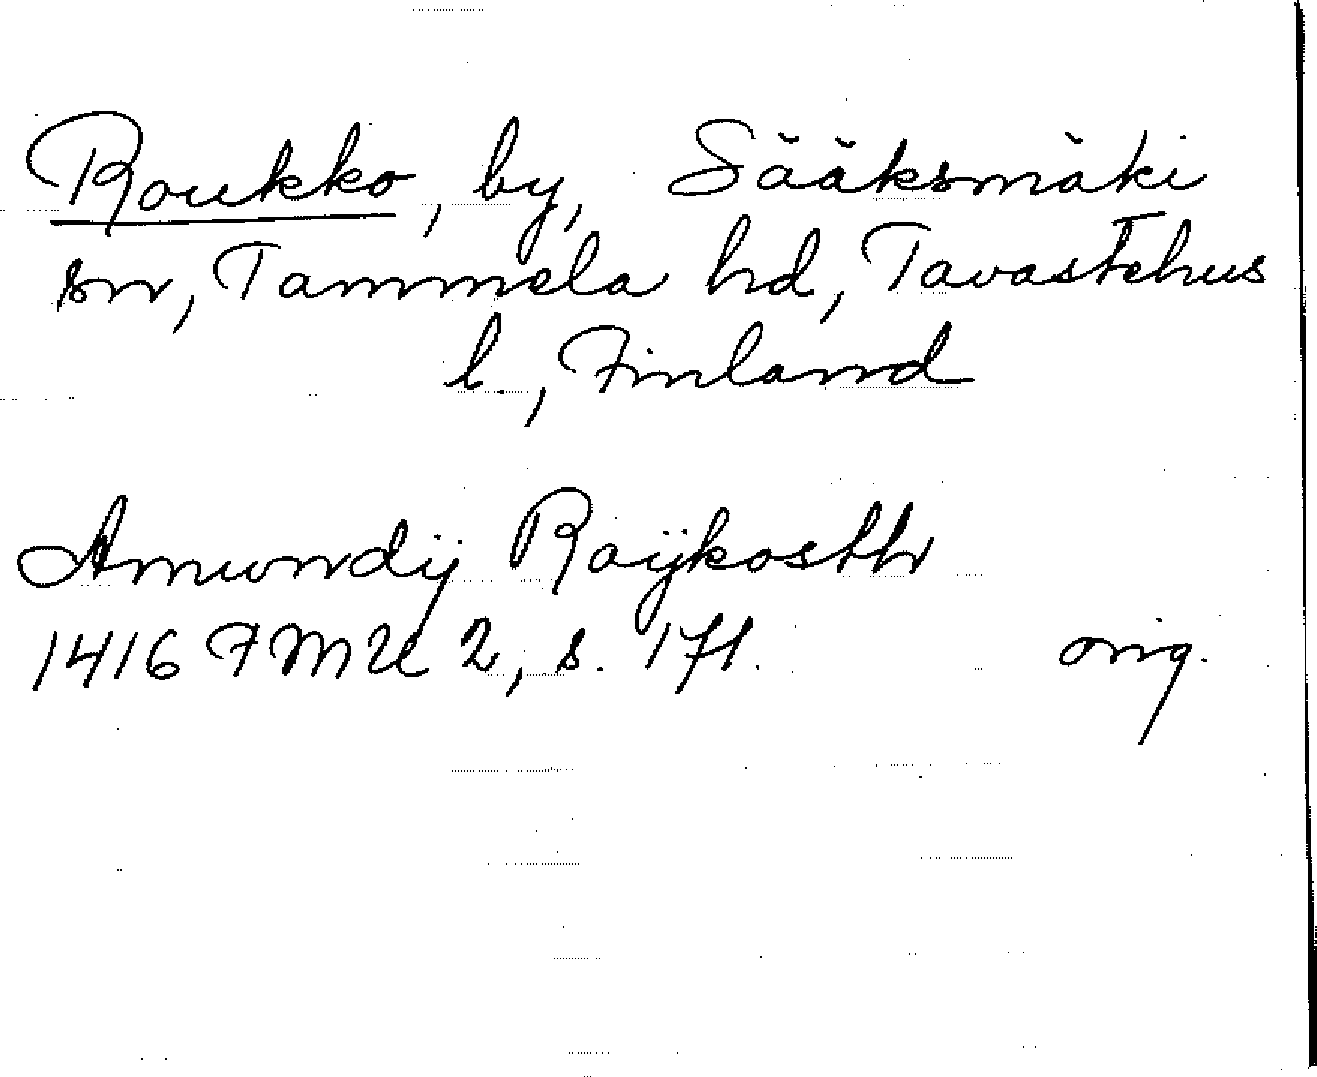 Roukko, by, Sääksmäki
sn, Tammela hd, Tavastehus
l, Finland
Amundij Roÿkosth
1416 FMU 2, s. 171. orig.